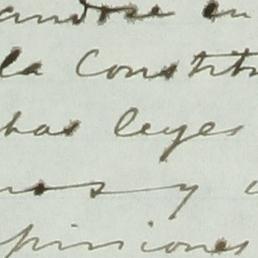 andose en
la Constitu
has leyes
nos y
piniones